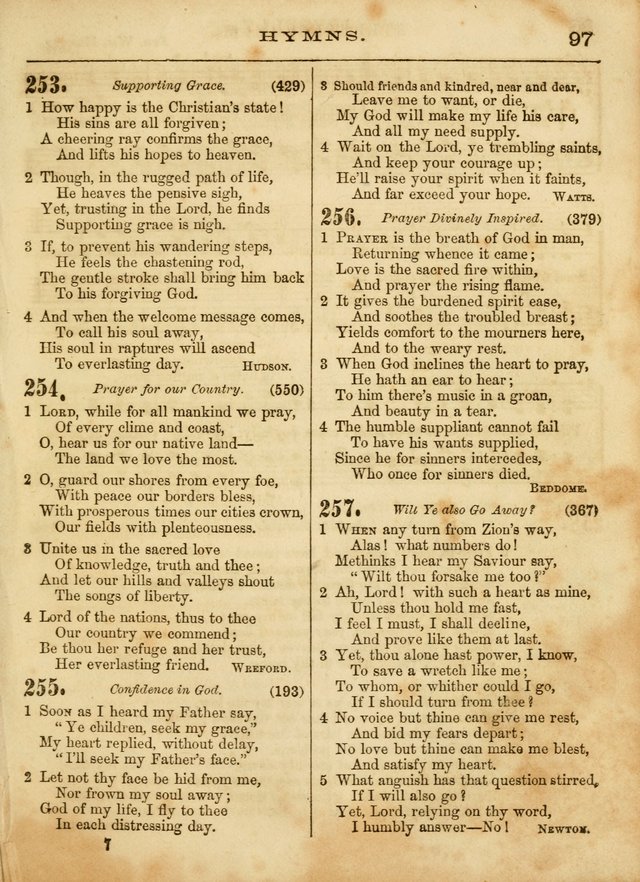 HYMNS. 97
253. Supporting Grace. (429)
1 How happy is the Christian's state!
His sins are all forgiven;
A cheering ray confirms the grace,
And lifts his hopes to heaven.
2 Though, in the rugged path of life,
He heaves the pensive sigh,
Yet, trusting in the Lord, he finds
Supporting grace is nigh.
3 If, to prevent his wandering steps,
He feels the chastening rod,
The gentle stroke shall bring him back
To his forgiving God.
4 And when the welcome message comes,
To call his soul away,
His soul in raptures will ascend
To everlasting day. HUDSON.
254. Prayer for our Country. (550)
1 LORD, while for all mankind we pray,
Of every clime and coast,
O, hear us for our native land—
The land we love the most.
2 O, guard our shores from every foe,
With peace our borders bless,
With prosperous times our cities crown,
Our fields with plenteousness.
3 Unite us in the sacred love
Of knowledge, truth and thee;
And let our hills and valleys shout
The songs of liberty.
4 Lord of the nations, thus to thee
Our country we commend;
Be thou her refuge and her trust,
Her everlasting friend. WREFORD.
255. Confidence in God. (193)
1 SOON as I heard my Father say,
"Ye children, seek my grace,"
My heart replied, without delay,
"I'll seek my Father's face."
2 Let not thy face be hid from me,
Nor frown my soul away;
God of my life, I fly to thee
In each distressing day.
7
3 Should friends and kindred, near and dear,
Leave me to want, or die,
My God will make my life his care,
And all my need supply.
4 Wait on the Lord, ye trembling saints,
And keep your courage up;
He'll raise your spirit when it faints,
And far exceed your hope. WATTS.
256. Prayer Divinely Inspired. (379)
1 PRAYER is the breath of God in man,
Returning whence it came;
Love is the sacred fire within,
And prayer the rising flame.
2 It gives the burdened spirit ease,
And soothes the troubled breast;
Yields comfort to the mourners here,
And to the weary rest.
3 When God inclines the heart to pray,
He hath an ear to hear;
To him there's music in a groan,
And beauty in a tear.
4 The humble suppliant cannot fail
To have his wants supplied,
Since he for sinners intercedes,
Who once for sinners died.
BEDDOME.
257. Will Ye also Go Away? (367)
1 WHEN any turn from Zion's way,
Alas! what numbers do!
Methinks I hear my Saviour say,
"Wilt thou forsake me too?"
2 Ah, Lord! with such a heart as mine,
Unless thou hold me fast,
I feel I must, I shall decline,
And prove like them at last.
3 Yet, thou alone hast power, I know,
To save a wretch like me;
To whom, or whither could I go,
If I should turn from thee?
4 No voice but thine can give me rest,
And bid my fears depart;
No love but thine can make me blest,
And satisfy my heart.
5 What anguish has that question stirred,
If I will also go?
Yet, Lord, relying on thy word,
I humbly answer—No! NEWTON.